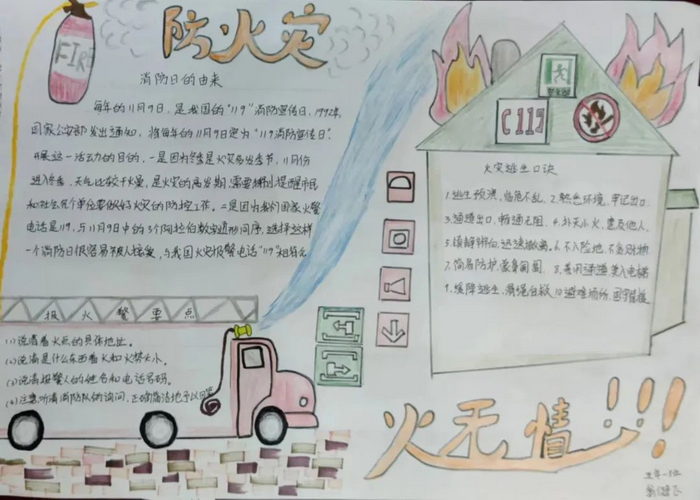 FIRE
防火灾
消防日的由来
每年的11月9日,是我国的"119"消防宣传日,1992年,
国家公安部发出通知,将每年的11月9定为"119消防宣传日".
开展这一活动的目的,一是因为冬季是火灾易发季节,11月份
进入冬季,天气比较干燥,是火灾的高发期,需要特别提醒市民
和社会各个单位要做好火灾的防控工作,二是因为我们国家火警
电话是119,与11月9日中的3个阿拉伯数字道形同序,选择这样
一个消防日很容易被人接受,与我国火灾报警电话"119"相符合
报火警要点
(1)说清着火点的具体地址。
(2)说清是什么东西着火和火势大小。
(3)说清报警人的姓名和电话号码。
(4)注意听清消防队的询问,正确简洁地予以回答
119
火灾逃生口诀
1.逃生预演,临危不乱.2.熟悉环境,牢记出口.
3.通道出口,畅通无阻.4.扑灭小火,惠及他人.
5.镇静辨向,迅速撤离.6.不入险地,不贪财物
7.简易防护,蒙鼻匍匐.8.善用通道,莫入电梯
9.缓降逃生,滑绳自救.10.避难场所,固守待援
火无情!!!
五年一班